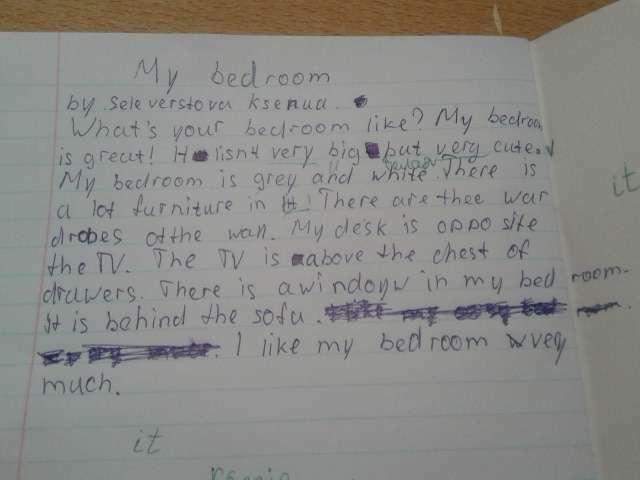 My bedroom
by Seleverstova Ksenua.
What's your bedroom like? My bedroo
is great! It isn't very big but very cute.
My bedroom is grey and white. There is
a lot furniture in it! There are thee war
drobes otthe wan. My desk is opposite
the TV. The TV is above the chest of
drawers. There is a windoyw in my bed room.
It is behind the sofa.
I like my bedroom vvey
much.
it
it